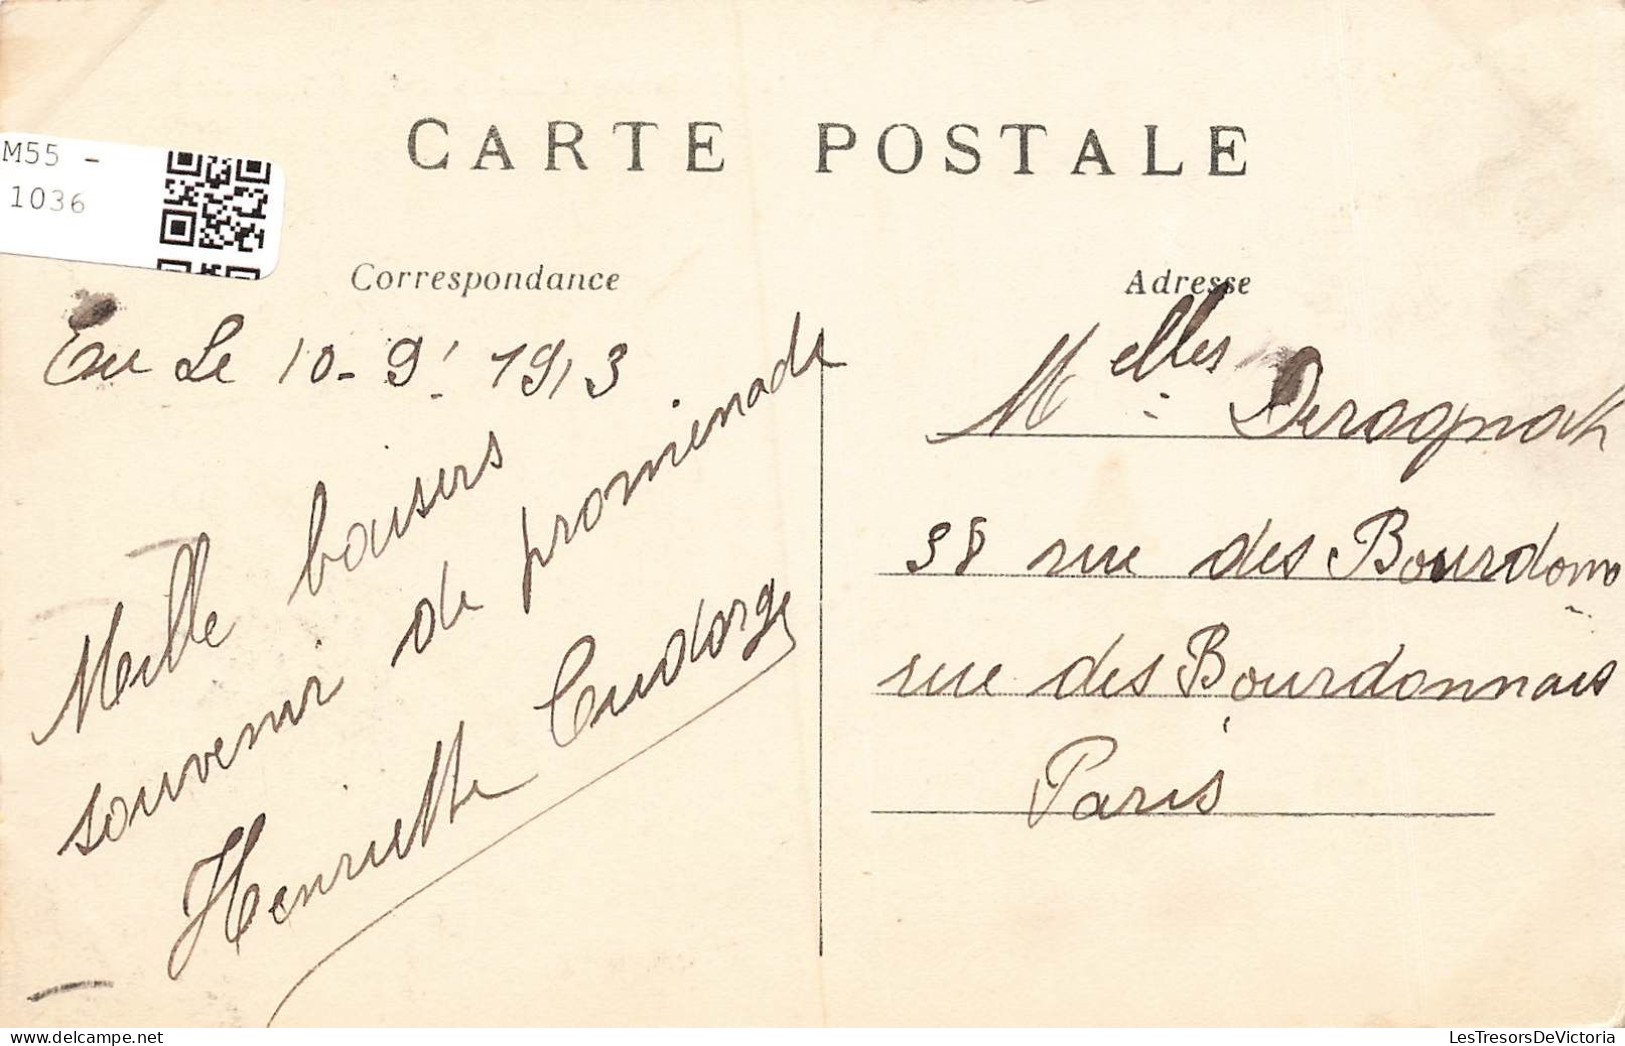 M55 -
1036
CARTE POSTALE
Correspondance
Eu Le 10-9! 1913
Mille baisers
souvenir de promenade
Henriette
Adresse
Melles
38 rue des Bourdonn
rue des Bourdonnais
Paris
delcampe.net
LesTresorsDeVictoria